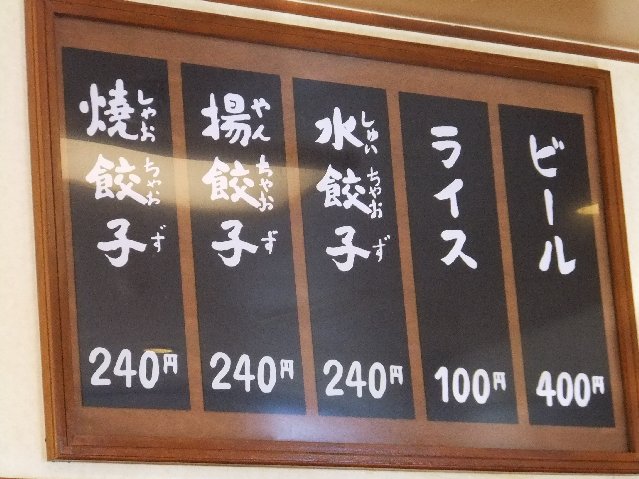 ビール
400円
ライス
100円
水餃子
しゅいちゃおず
240円
揚餃子
やんちゃおず
240円
焼餃子
しゃおちゃおず
240円